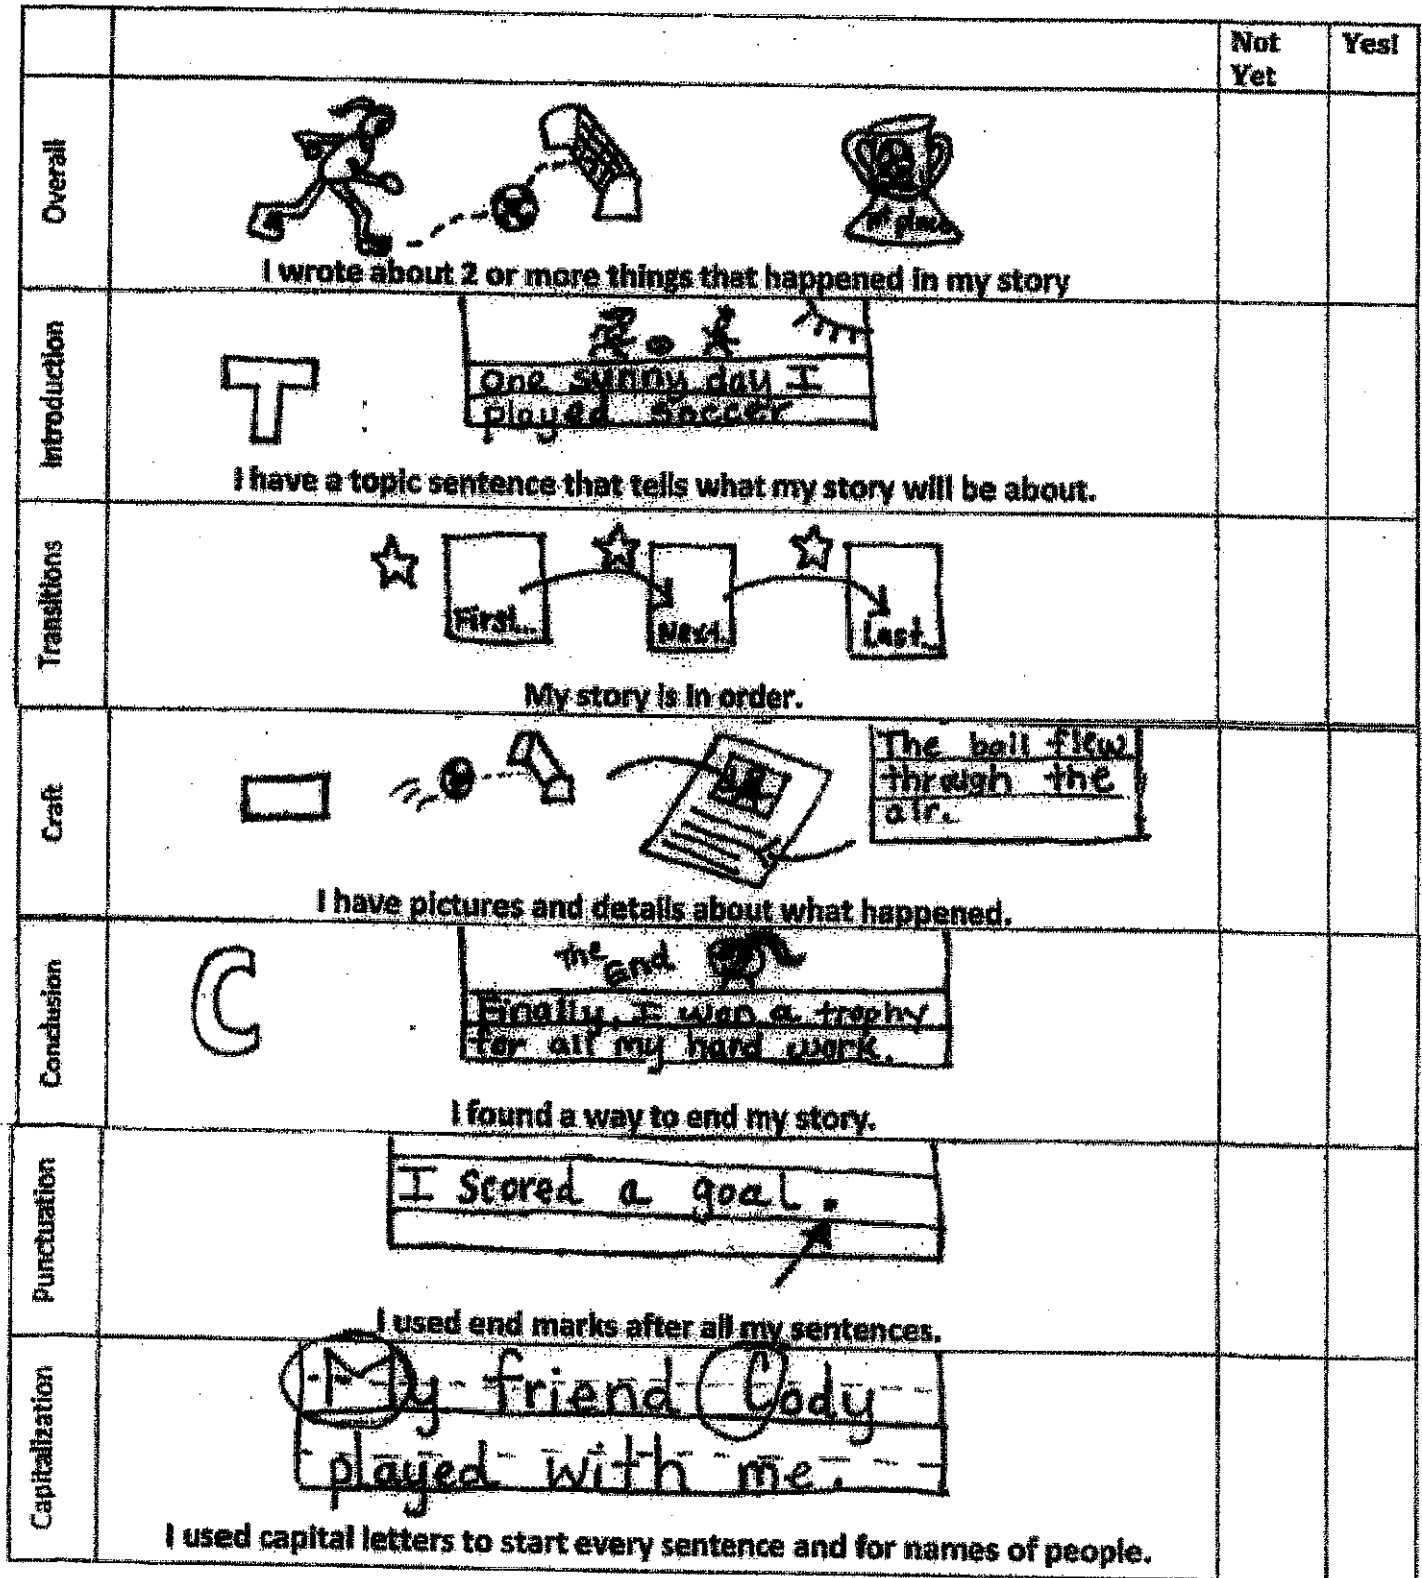 Not
Yet
Yes!
Overall
1st place
I wrote about 2 or more things that happened in my story
Introduction
T
One sunny day I
played soccer
I have a topic sentence that tells what my story will be about.
Transitions
First...
Next...
Last...
My story is in order.
Craft
The ball flew
through the
air.
I have pictures and details about what happened.
Conclusion
C
The End
Finally, I won a trophy
for all my hard work.
I found a way to end my story.
Punctuation
I Scored a goal.
I used end marks after all my sentences.
Capitalization
My friend Cody
played with me.
I used capital letters to start every sentence and for names of people.